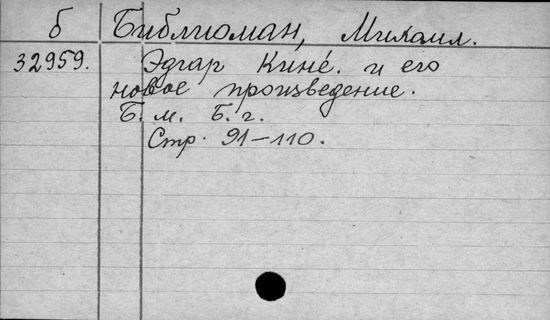 б Библиоман, Михаил.
32959. Эдгар Кине́. и его
новое произведение.
Б. м. Б. г.
Стр. 91-110.